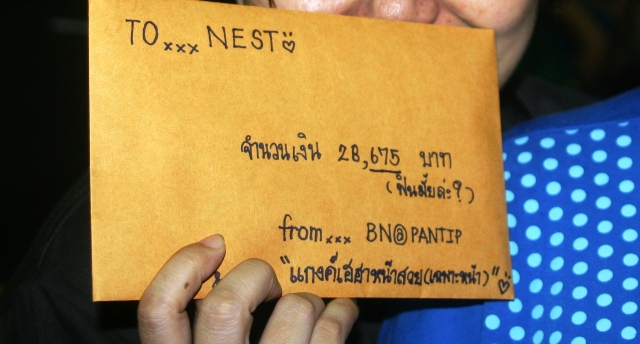 TO...xxx NEST
จำนวนเงิน 28,675 บาท
(ฟินมั้ยล่ะ?)
from...xxx BN@PANTIP
"แกงค์เฮฮาหน้าสวย(เฉพาะหน้า)"